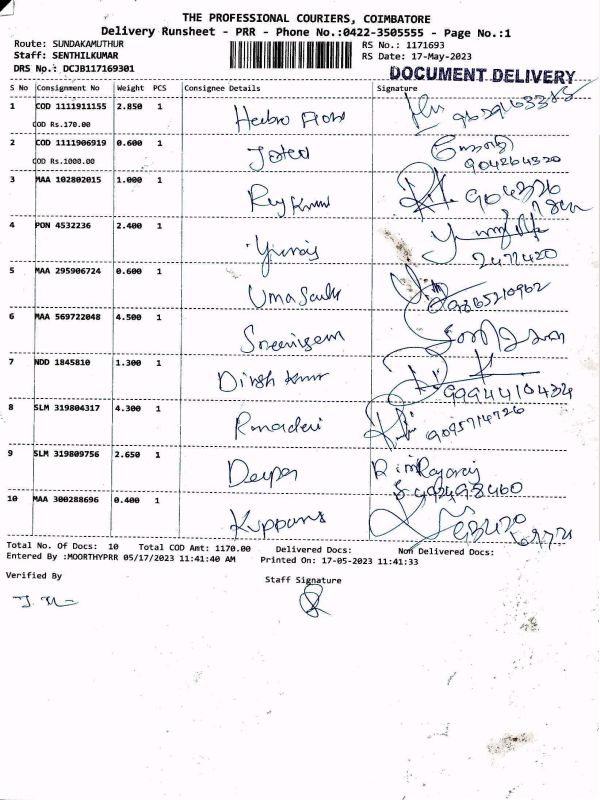 THE PROFESSIONAL COURIERS, COIMBATORE
Delivery Runsheet - PRR - Phone No.:0422-3505555 - Page No.:1
Route: SUNDAKAMUTHUR RS No.: 1171693
Staff: SENTHILKUMAR RS Date: 17-May-2023
DRS No.: DCJB117169301
DOCUMENT DELIVERY
S No Consignment No Weight PCS Consignee Details Signature
1 COD 1111911155 2.850 1
COD Rs.170.00
2 COD 1111906919 0.600 1
COD Rs.1000.00 904264320
3 MAA 102802015 1.000 1
4 PON 4532236 2.400 1
2472420
5 MAA 295906724 0.600 1
9865210962
6 MAA 569722048 4.500 1
7 NDD 1845810 1.300 1 Dinsh kumar
9994410434
8 SLM 319804317 4.300 1 Rmadevi
9095714726
9 SLM 319809756 2.650 1 Deepa
10 MAA 300288696 0.400 1
Total No. Of Docs: 10 Total COD Amt: 1170.00 Delivered Docs: Non Delivered Docs:
Entered By :MOORTHYPRR 05/17/2023 11:41:40 AM Printed On: 17-05-2023 11:41:33
Verified By Staff Signature